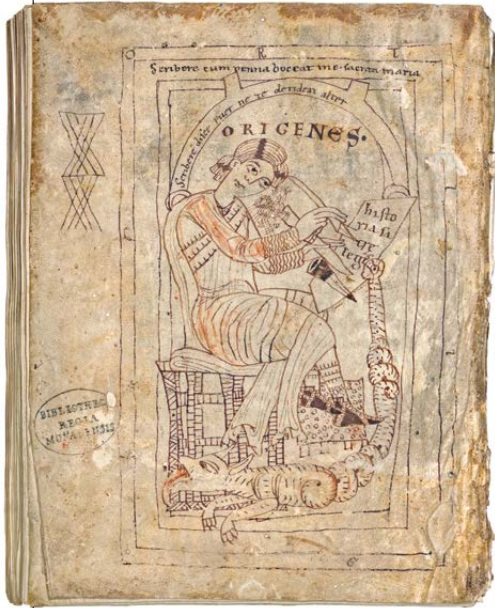 O R T
Scribere cum penna doceat me sacra maria
Scribere disce puer ne te derideat alter
ORIGENES·
histo
ria si
legi
BIBLIOTHECA
REGIA
MONACENSIS